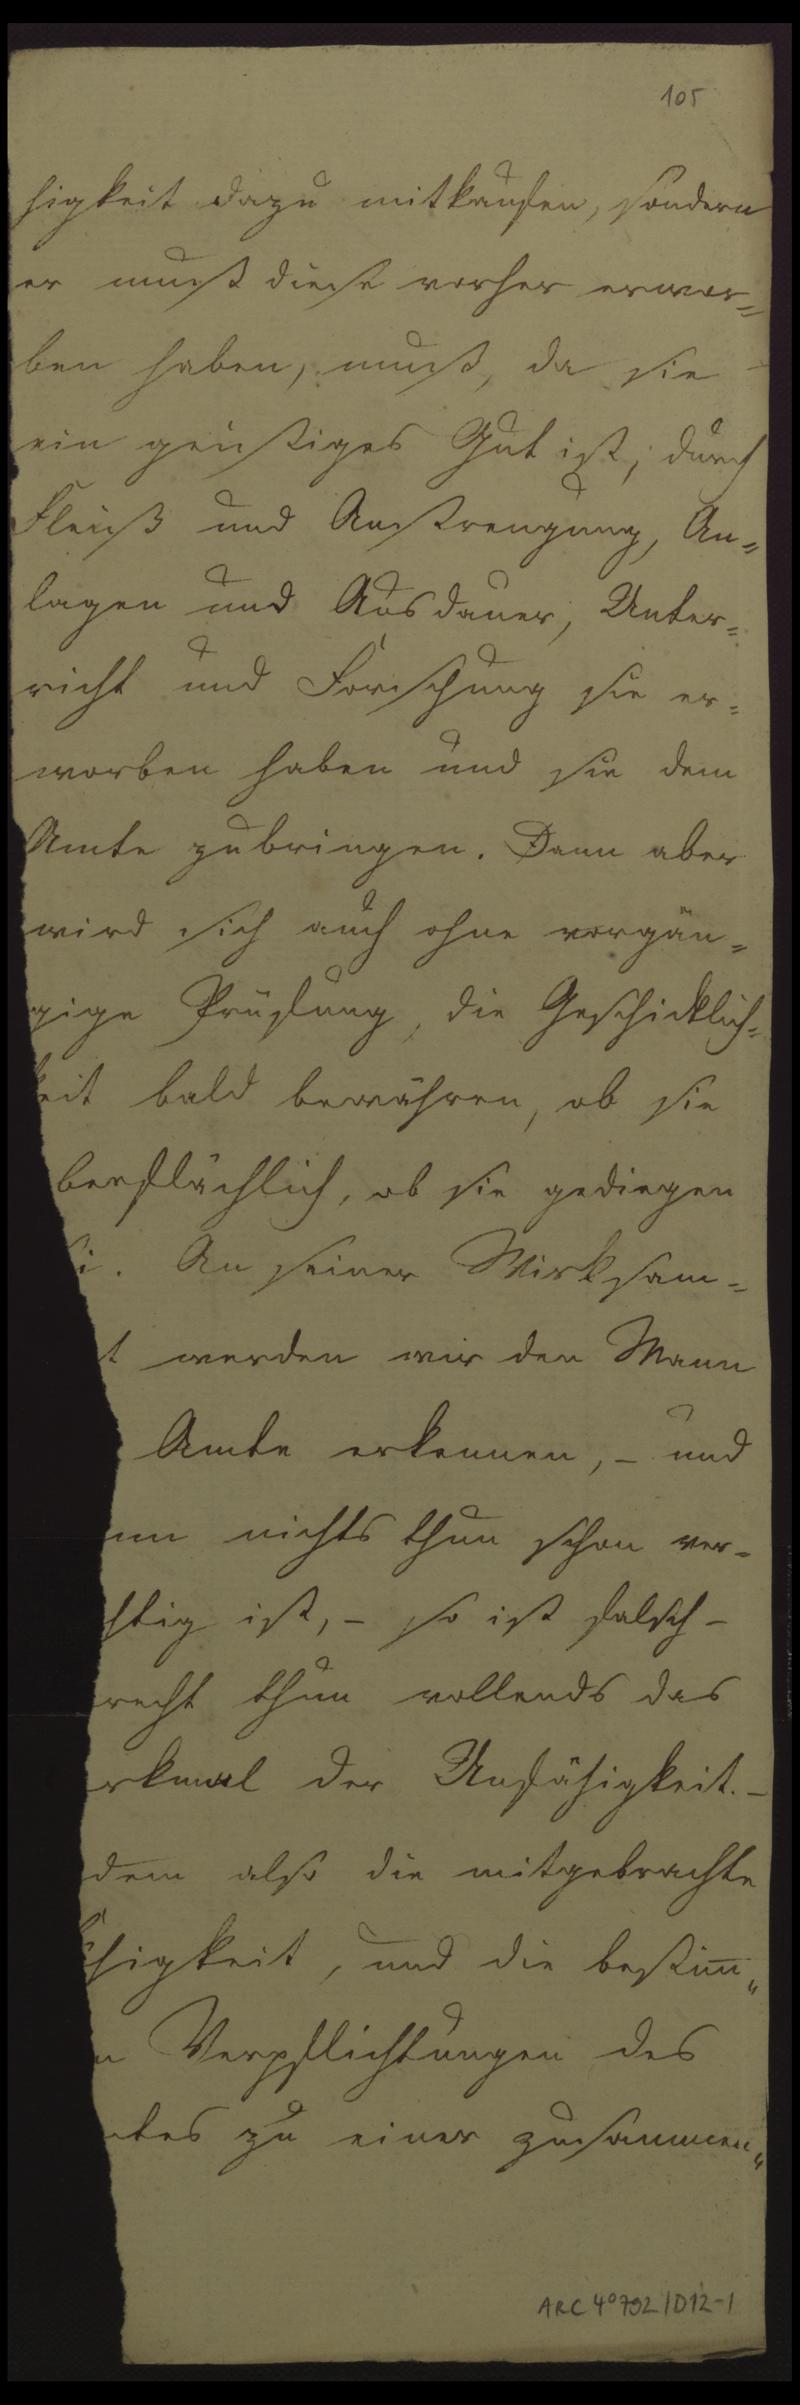 105
higkeit dazu mitkaufen, sondern
er muß diese vorher erwor=
ben haben, muß, da sie
ein geistiges Gut ist, durch
Fleiß und Anstrengung, An=
lagen und Ausdauer, Unter=
richt und Forschung sie er=
worben haben und sie dem
Amte zubringen. Dann aber
wird sich auch ohne vorgän=
gige Prüfung, die Geschicklich=
keit bald bewähren, ob sie
berflächlich, ob sie gediegen
ei. An seiner Wirksam=
t werden wir den Mann
Amte erkennen, – und
nn nichts thun schon ver=
htig ist, – so ist falsch –
recht thun vollends das
rkmal der Unfähigkeit. –
dem also die mitgebrachte
ähigkeit, und die bestim̅"
n Verpflichtungen des
mtes zu einer zusammen"
ARC 4° 792/D12-1